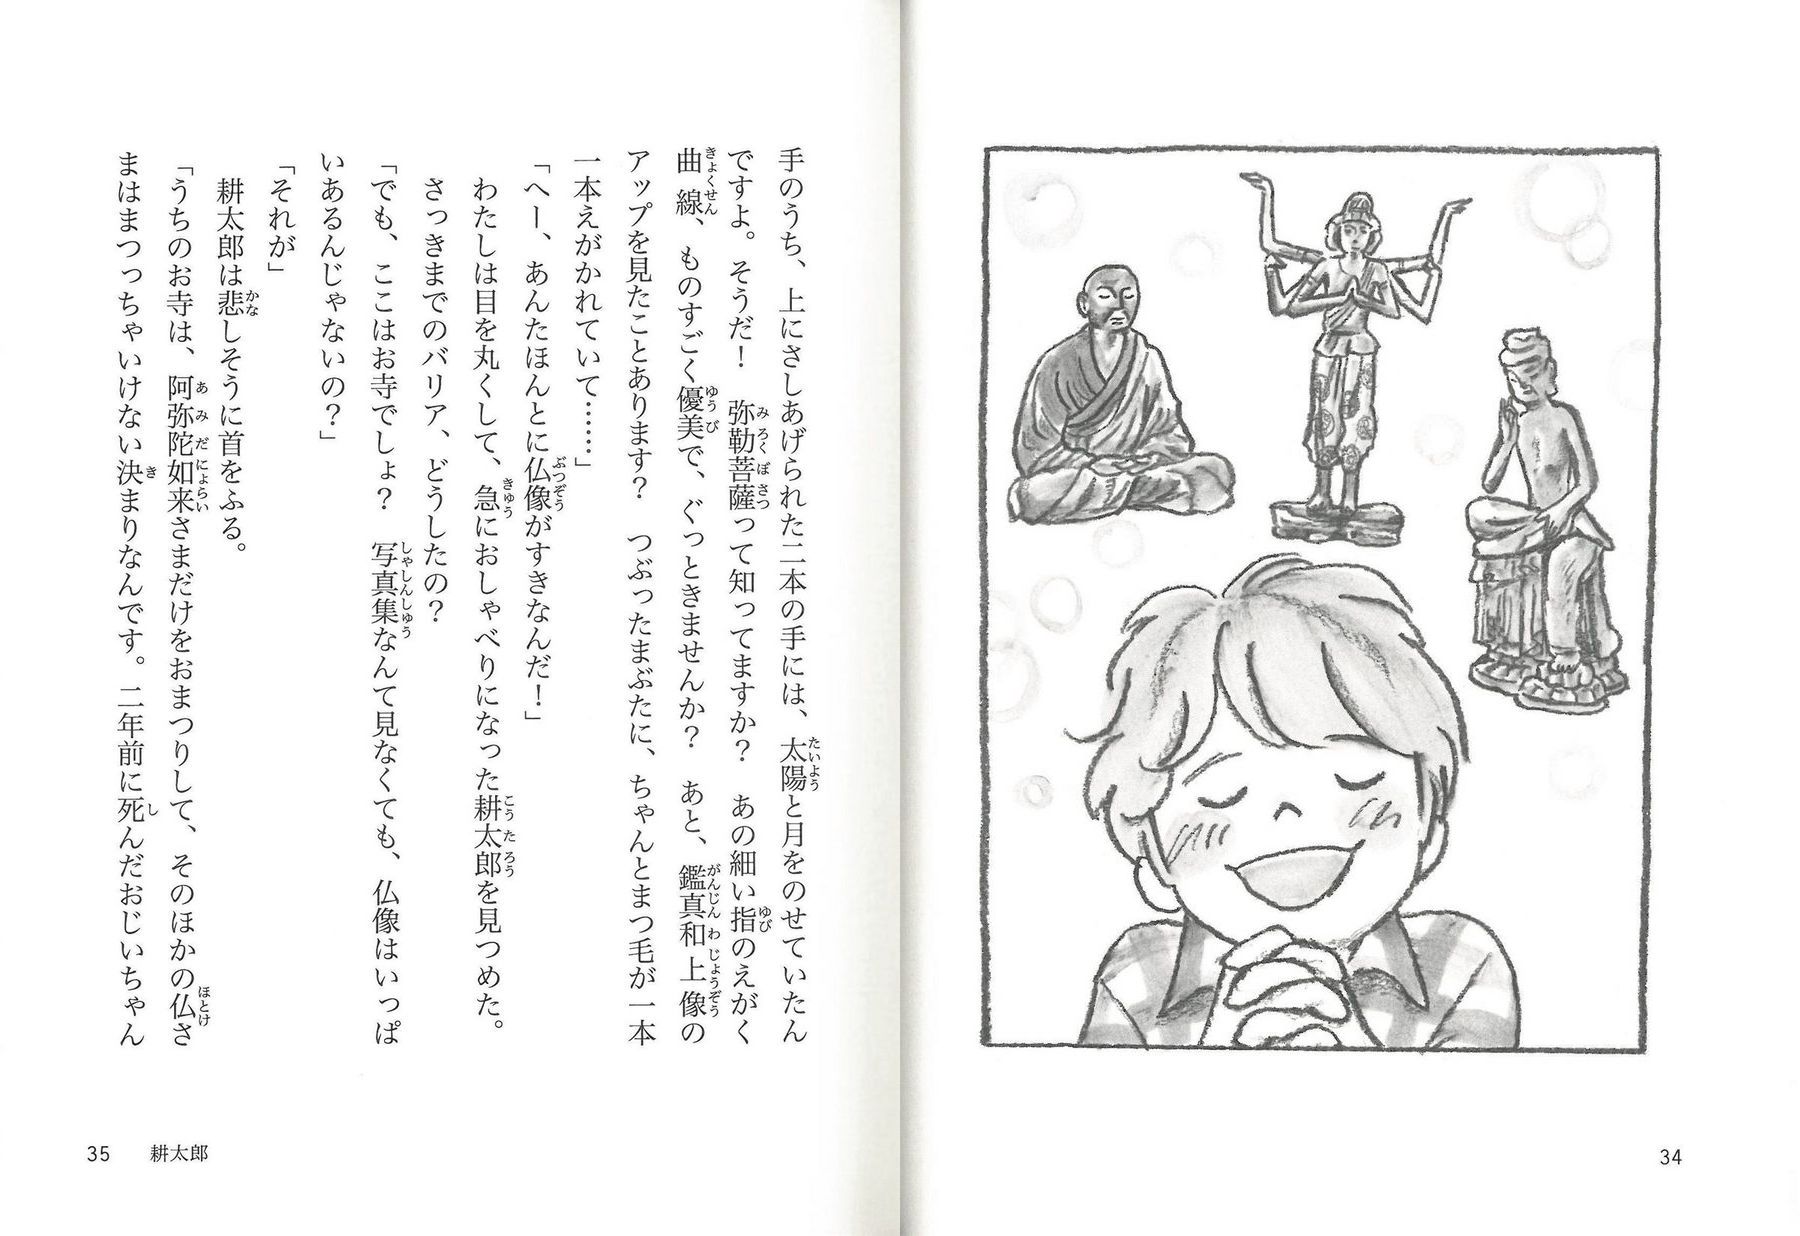 34
手のうち、上にさしあげられた二本の手には、太陽と月をのせていたん
ですよ。そうだ！　弥勒菩薩って知ってますか？　あの細い指のえがく
曲線、ものすごく優美で、ぐっときませんか？　あと、鑑真和上像の
アップを見たことあります？　つぶったまぶたに、ちゃんとまつ毛が一本
一本えがかれていて……」
「へー、あんたほんとに仏像がすきなんだ！」
わたしは目を丸くして、急におしゃべりになった耕太郎を見つめた。
さっきまでのバリア、どうしたの？
「でも、ここはお寺でしょ？　写真集なんて見なくても、仏像はいっぱ
いあるんじゃないの？」
「それが」
耕太郎は悲しそうに首をふる。
「うちのお寺は、阿弥陀如来さまだけをおまつりして、そのほかの仏さ
まはまつっちゃいけない決まりなんです。二年前に死んだおじいちゃん
35　耕太郎